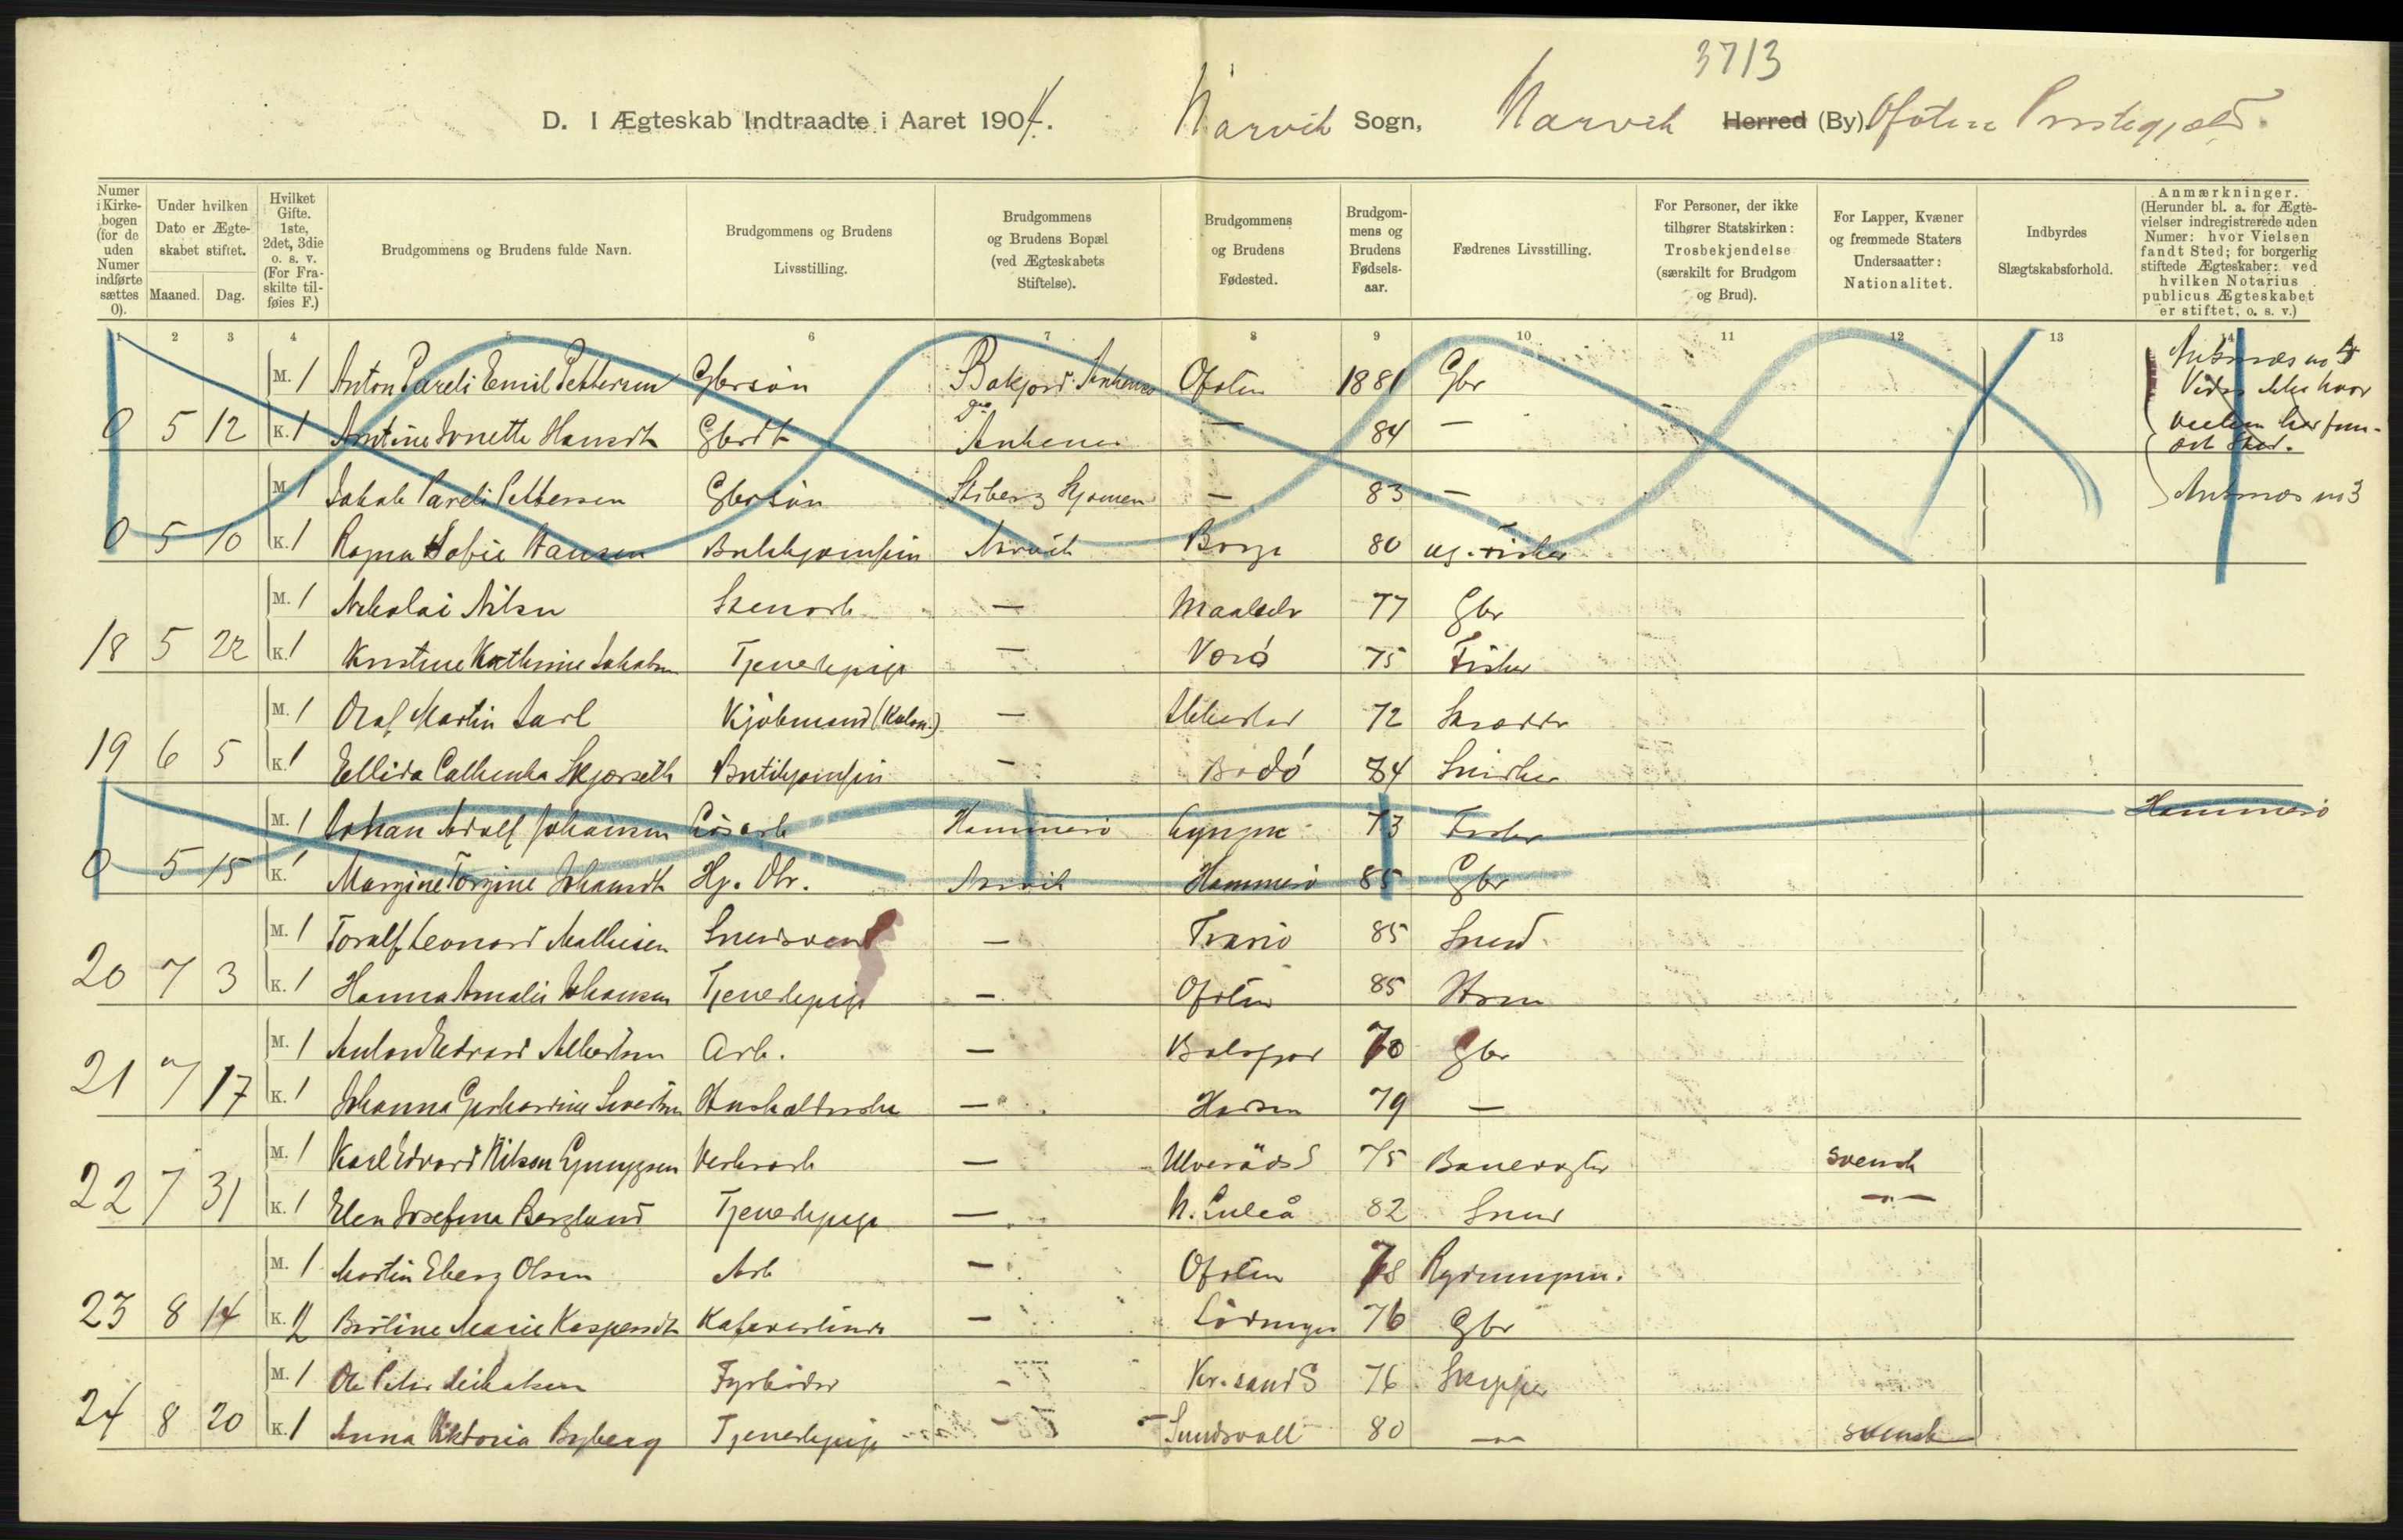 3713
D. I Ægteskab Indtraadte i Aaret 1904. Narvik Sogn, Narvik Herred (By) Ofoten Prstegjæld.
Numer i Kirkebogen (for de uden Numer indførte sættes 0).
Under hvilken Dato er Ægteskabet stiftet.
Maaned. Dag.
Hvilket Gifte. 1ste, 2det, 3die o. s. v. (For Fraskilte tilføies F.)
Brudgommens og Brudens fulde Navn.
Brudgommens og Brudens Livsstilling.
Brudgommens og Brudens Bopæl (ved Ægteskabets Stiftelse).
Brudgommens og Brudens Fødested.
Brudgommens og Brudens Fødselsaar.
Fædrenes Livsstilling.
For Personer, der ikke tilhører Statskirken: Trosbekjendelse (særskilt for Brudgom og Brud).
For Lapper, Kvæner og fremmede Staters Undersaatter: Nationalitet.
Indbyrdes Slægtskabsforhold.
Anmærkninger. (Herunder bl. a. for Ægtevielser indregistrerede uden Numer: hvor Vielsen fandt Sted; for borgerlig stiftede Ægteskaber: ved hvilken Notarius publicus Ægteskabet er stiftet, o. s. v.)
1 2 3 4 5 6 7 8 9 10 11 12 13 14
M. 1 Anton Pareli Emil Pettersen Gbrsøn Ofoten 1881 Gbr
0 5 12 K. 1 Hansdt Gbrdt Ankenes — 84 —
M. 1 Jakob Pareli Pettersen Gbrsøn Skjomen — 83 — Ankenes no 3
0 5 10 K. 1 Ragna Sofie Hansen Narvik Borge 80 Fisker
M. 1 Nikolai Nilsen Stenarb — Maalselv 77 Gbr
18 5 22 K. 1 Kristine Kathrine Jakobsen Tjenestepige — Værö 75 Fisker
M. 1 Olaf Martin Jarl Kjöbmand (Kolon.) — Ibbestad 72 Skrædder
19 6 5 K. 1 Ellida Cathinka Skjærseth Butikjomfru — Bodö 84 Snedker
M. 1 Johan Adolf Johansen Lösarb Hammerö Lyngen 73 Fisker Hammerö
0 5 15 K. 1 Margine Torgine Johansdt Hj. Dtr. Narvik Hammerö 85 Gbr
M. 1 Toralf Leonard Mathisen Smedsvend — Tranö 85 Smed
20 7 3 K. 1 Hanna Amalie Johansen Tjenestepige — Ofoten 85 Hsm
M. 1 Anton Edvard Albertsen Arb. — Balsfjord 70 Gbr
21 7 17 K. 1 Johanna Gerhardine Sivertsen Husholderske — Hadsen 79 —
M. 1 Karl Edvard Nilson Verksarb — S 75 Banevogter svensk
22 7 31 K. 1 Elen Josefina Berglund Tjenestepige — N. Luleå 82 Smed —"—
M. 1 Martin Eberg Olsen Arb — Ofoten 78
23 8 14 K. 2 Bertine Marie Kaspersdt Kafeværtinde — Lödingen 76 Gbr
M. 1 Ole Peter Fyrböder — Kr.sand S 76 Skipper
24 8 20 K. 1 Anna Viktoria Byberg Tjenestepige — Sundsvall 80 —"— svensk